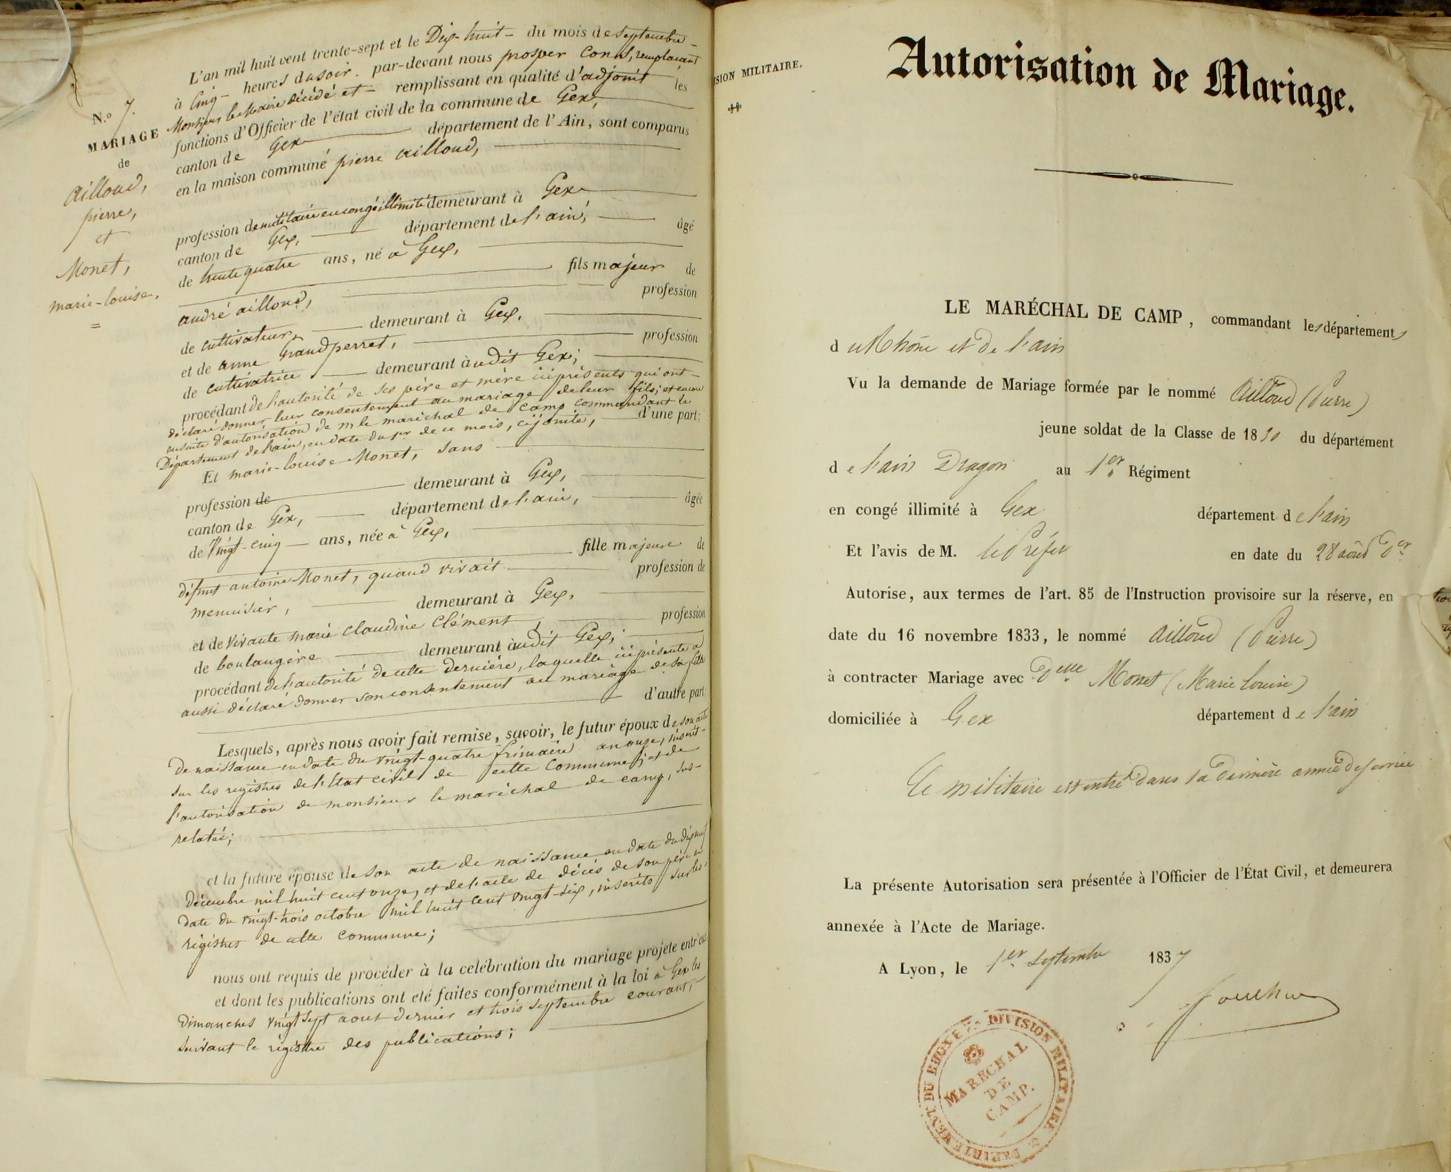 N.o 7.
MARIAGE
de
Ailloud,
pierre,
et
Monet,
marie-louise.
L'an mil huit cent trente-sept et le Dix-huit du mois de septembre
à Cinq heures du soir. par-devant nous prosper remplaçant
Monsieur le Maire décédé et remplissant en qualité d'adjoint les
fonctions d'Officier de l'état civil de la commune de Gex,
canton de Gex département de l'Ain, sont comparus
en la maison commune pierre ailloud,
profession de militaire en congé illimité demeurant à Gex
canton de Gex, département de l'ain, âgé
de trente quatre ans, né à Gex,
fils majeur de
andré ailloud, profession
de cultivateur, demeurant à Gex,
et de anne Grandperret, profession
de cultivatrice demeurant audit Gex;
procédant de l'autorité de ses père et mère ici présents qui ont
déclaré donner leur consentement au mariage de leur fils; et encore
ensuite d'autorisation de mr le maréchal de camp commandant le
Département de l'ain, en date du pr de ce mois, ci jointe, d'une part;
Et marie-louise Monet, sans
profession de demeurant à Gex,
canton de Gex, département de l'ain, âgée
de Vingt-cinq ans, née à Gex,
fille majeure de
défunt antoine Monet, quand vivait profession de
menuisier, demeurant à Gex,
et de vivante marie claudine Clément profession
de boulangère demeurant audit Gex;
procédant de l'autorité de cette dernière, laquelle ici présente a
aussi déclaré donner son consentement au mariage de sa fille
d'autre part
Lesquels, après nous avoir fait remise, savoir, le futur époux de son acte
de naissance en date du vingt-quatre frimaire an onze, inscrit
sur les registres de l'Etat civil de cette Commune; et de
l'autorisation de monsieur le maréchal de camp, sus-
relatée;
et la future épouse de son acte de naissance en date du
décembre mil huit cent onze, et de l'acte de décès de son père en
date du vingt-trois octobre mil huit cent vingt-six, inscrits sur les
registres de cette commune;
nous ont requis de procéder à la célébration du mariage projeté entr'eux
et dont les publications ont été faites conformément à la loi à Gex les
dimanches vingt sept aout dernier et trois septembre courant,
suivant le registre des publications;
SION MILITAIRE.
Autorisation de Mariage.
LE MARÉCHAL DE CAMP, commandant les départements
d u Rhône et de l'ain
Vu la demande de Mariage formée par le nommé Ailloud (Pierre)
jeune soldat de la Classe de 1830 du département
d e l'ain Dragon au 1er Régiment
en congé illimité à Gex département d e l'ain
Et l'avis de M. le Préfet en date du 28 août der
Autorise, aux termes de l'art. 85 de l'Instruction provisoire sur la réserve, en
date du 16 novembre 1833, le nommé Ailloud (Pierre)
à contracter Mariage avec Delle Monet (Marie Louise)
domiciliée à Gex département d e l'ain
Ce militaire est entré dans sa dernière année de service
La présente Autorisation sera présentée à l'Officier de l'État Civil, et demeurera
annexée à l'Acte de Mariage.
A Lyon, le 1er Septembre 1837
DIVISION MILITAIRE DEPARTEMENT DU RHONE
MARECHAL
DE
CAMP.